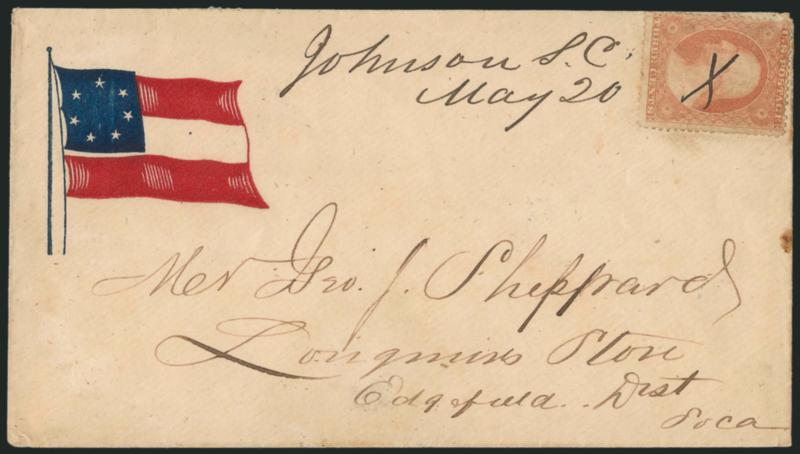 Johnson S.C.
May 20
X
Mr Geo. J. Sheppard
Longmires Store
Edgefield. Dist
So ca